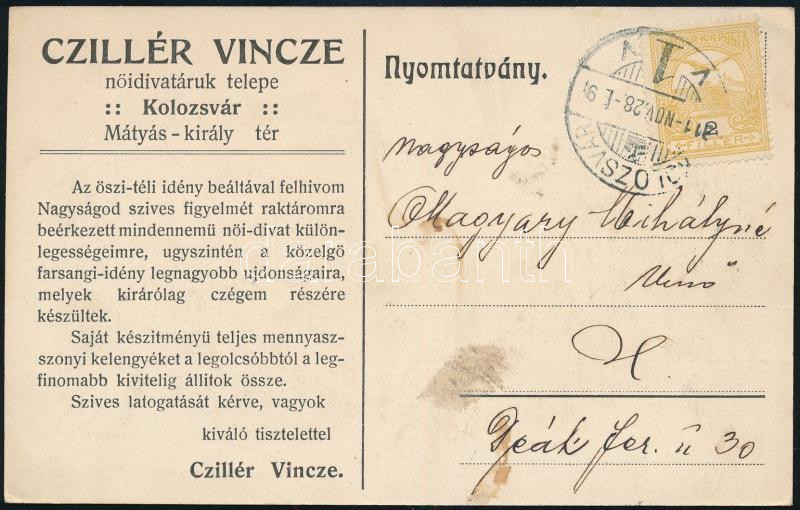 CZILLÉR VINCZE
nőidivatáruk telepe
:: Kolozsvár ::
Mátyás-király tér
Az öszi-téli idény beáltával felhivom
Nagyságod szives figyelmét raktáromra
beérkezett mindennemü nöi-divat külön-
legességeimre, ugyszintén a közelgö
farsangi-idény legnagyobb ujdonságaira,
melyek kirárólag czégem részére
készültek.
Saját készitményü teljes mennyasz-
szonyi kelengyéket a legolcsóbbtól a leg-
finomabb kivitelig állitok össze.
Szives latogatását kérve, vagyok
kiváló tisztelettel
Czillér Vincze.
Nyomtatvány.
911-NOV.28-
KOLOZSVÁR
FILLÉR
nagyságos
Magyary Mihályné
Urnő
H.
Deák Fer. u 30
darabanth